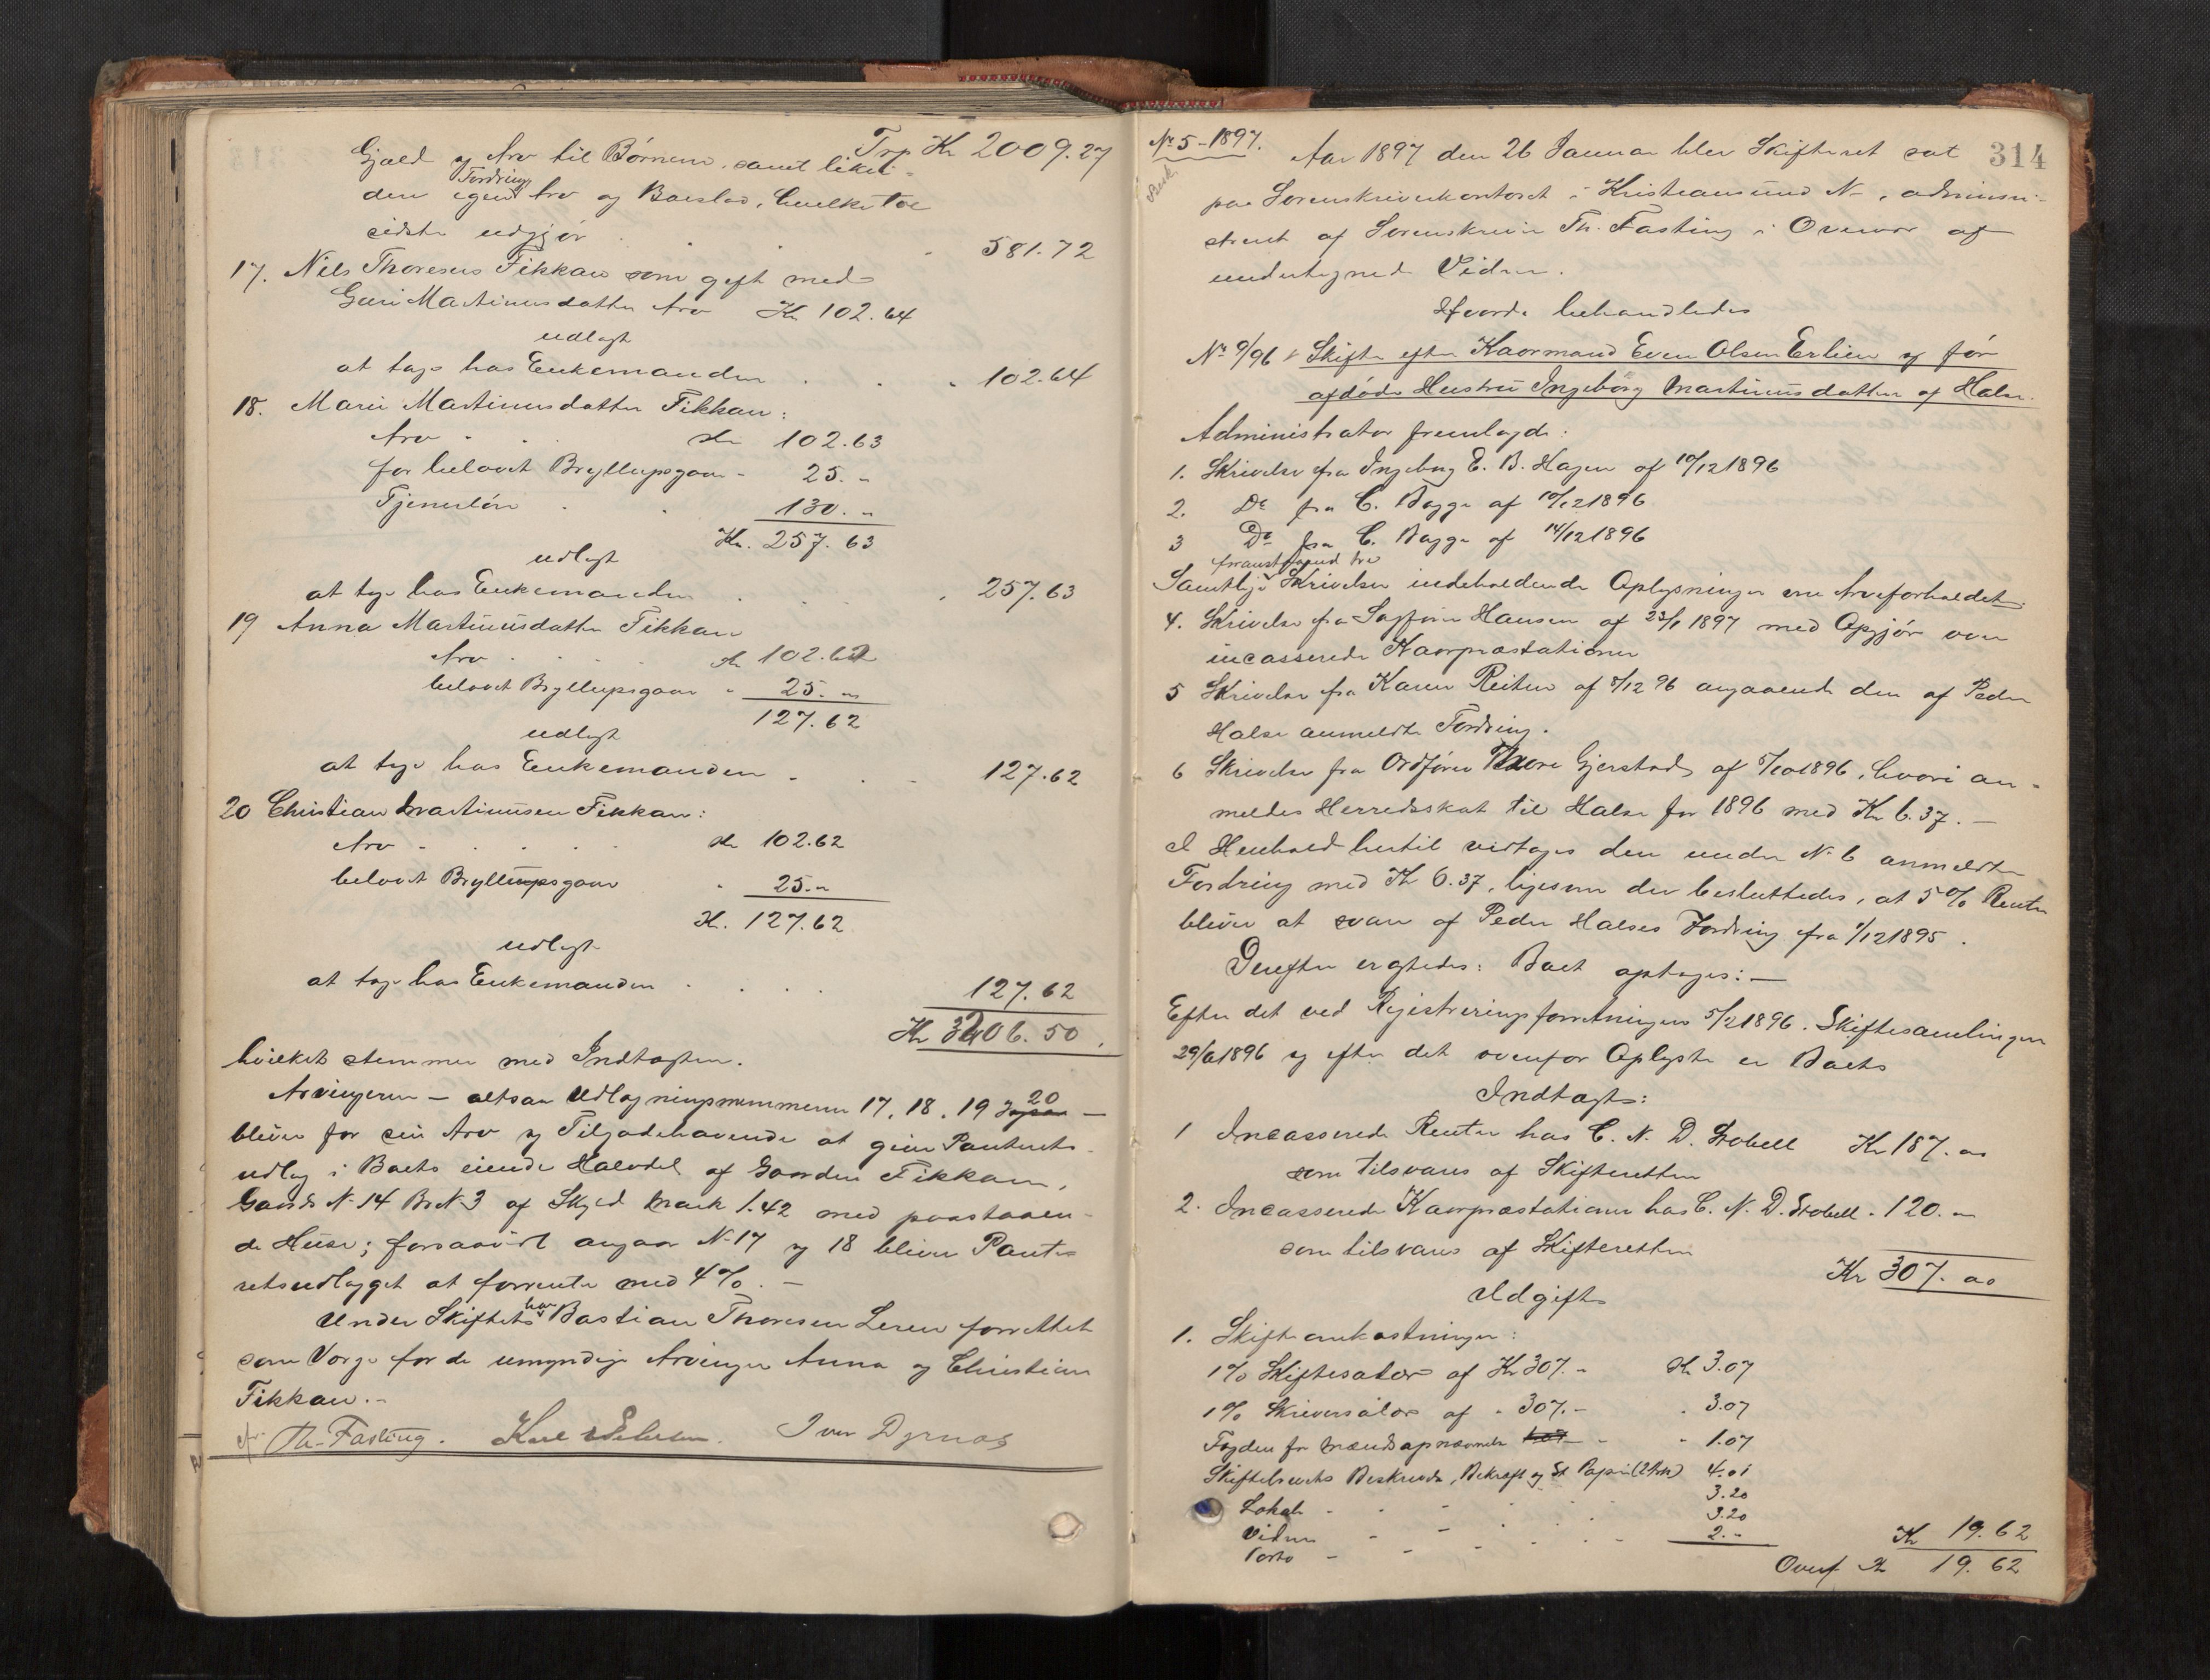 Trp. Kr 2009.27
Gjæld og Arv til Børnene, samt likvi-
den egen Fordring, Arv og Boeslod, hvilke to
sidste udgjør . . . 581.72
17. Nils Thoresen Fikkan som gift med
Guri Martinusdatter Arv Kr 102.64
udlagt
at tage hos Enkemanden . . . 102.64
18. Marie Martinusdatter Fikkan:
Arv . . Kr 102.63
for belovet Bryllupsgaar - 25. "
Tjenerløn . . 130. "
Kr. 257.63
udlagt
at tage hos Enkemanden . . . 257.63
19 Anna Martinusdatter Fikkan
Arv . . . . Kr 102.62
belovet Bryllupsgaar " 25. "
127.62
udlagt
at tage hos Enkemanden . . . 127.62
20 Christian Martinussen Fikkan:
Arv . . . . . Kr 102.62
belovet Bryllupsgaar " 25. "
Kr. 127.62
udlagt
at tage hos Enkemanden . . . . 127.62
Kr 3206.50.
hvilket stemmer med Indtægten.
Arvingerne — altsaa Udlægningsnummerne 17, 18, 19 og 20 —
bliver for sin Arv og Tilgodehavende at give Panterets-
udlæg i Boets eiende Halvdel af Gaarden Fikkan,
Gaards N. 14 Br. N. 3 af Skyld Mark 1.42 med paastaaen-
de Huse; forsaavidt angaar N. 17 og 18 bliver Pante-
retsudlægget at forrente med 4%. —
Under Skiftet har Bastian Thoresen Leren forrettet
som Værge for de umyndige Arvinger Anna og Christian
Fikkan. —
Th. Fasting. Iver Dyrnes
314
No 5 - 1897.
Aar 1897 den 26 Januar blev Skifteret sat
paa Sorenskriverkontoret i Kristiansund N., admini-
streret af Sorenskriver Th. Fasting i Overvær af
undertegnede Vidner.
Hvorda behandledes
No 9/96 Skifte efter Kaarmand Even Olsen Erlien og før
afdøde Hustru Ingeborg Martinusdatter af Halse.
Administrator fremlagde:
1. Skrivelse fra Ingeborg E. B. Hagen af 10/12 1896
2. Do fra C. Bagge af 10/12 1896
3 Do fra C. Bagge af 14/12 1896
Samtlige foranstaaende tre Skrivelser indeholdende Oplysninger om Arveforholdet.
4. Skrivelse fra Sagfører Hansen af 23/1 1897 med Opgjør over
incasserede Kaarpræstationer
5 Skrivelse fra Karen Reiten af 8/12 96 angaaende den af Peder
Halse anmeldte Fordring.
6 Skrivelse fra Ordfører Thore Gjerstad af 5/10 1896, hvori an-
meldes Herredsskat til Halse for 1896 med Kr 6.37. —
I Henhold hertil vedtages den under N. 6 anmeldte
Fordring med Kr 6.37, ligesom der besluttedes, at 5% Renter
bliver at svare af Peder Halses Fordring fra 1/12 1895.
Derefter eragtedes: Boet optages: —
Efter det ved Registreringsforretningen 5/2 1896. Skiftesamlingen
29/6 1896 og efter det ovenfor Oplyste er Boets
Indtægt:
1 Incasserede Renter hos C. N. D. Stobell Kr 187. 00
som tilsvares af Skifteretten
2. Incasserede Kaarpræstationer hos C. N. D. Stobell - 120. "
som tilsvares af Skifteretten
Kr 307. 00
Udgift
1. Skifteomkostninger:
1% Skiftesalær af Kr 307. " Kr 3.07
1% Skriversalær af " 307. - " 3.07
Fogden for Mændsopnævnelse " " 1.07
Skiftebrevets Beskrivelse, Bekræft og St Papir (2 Ark) 4.01
Lokale - - - . . . 3.20
Vidner - - - . . . 3.20
Porto - - - - - - 2. -
Kr 19.62
Overf Kr 19.62